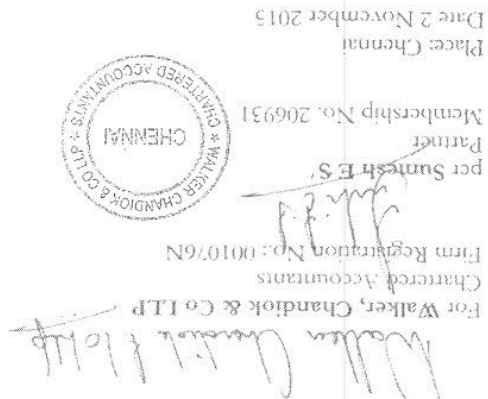 Walker Chandiok & Co LLP
For Walker, Chandiok & Co LLP
Chartered Accountants
Firm Registration No.: 001076N
per Sumesh E S
Partner
Membership No. 206931
Place: Chennai
Date 2 November 2015
WALKER CHANDIOK & CO LLP * CHARTERED ACCOUNTANTS *
CHENNAI